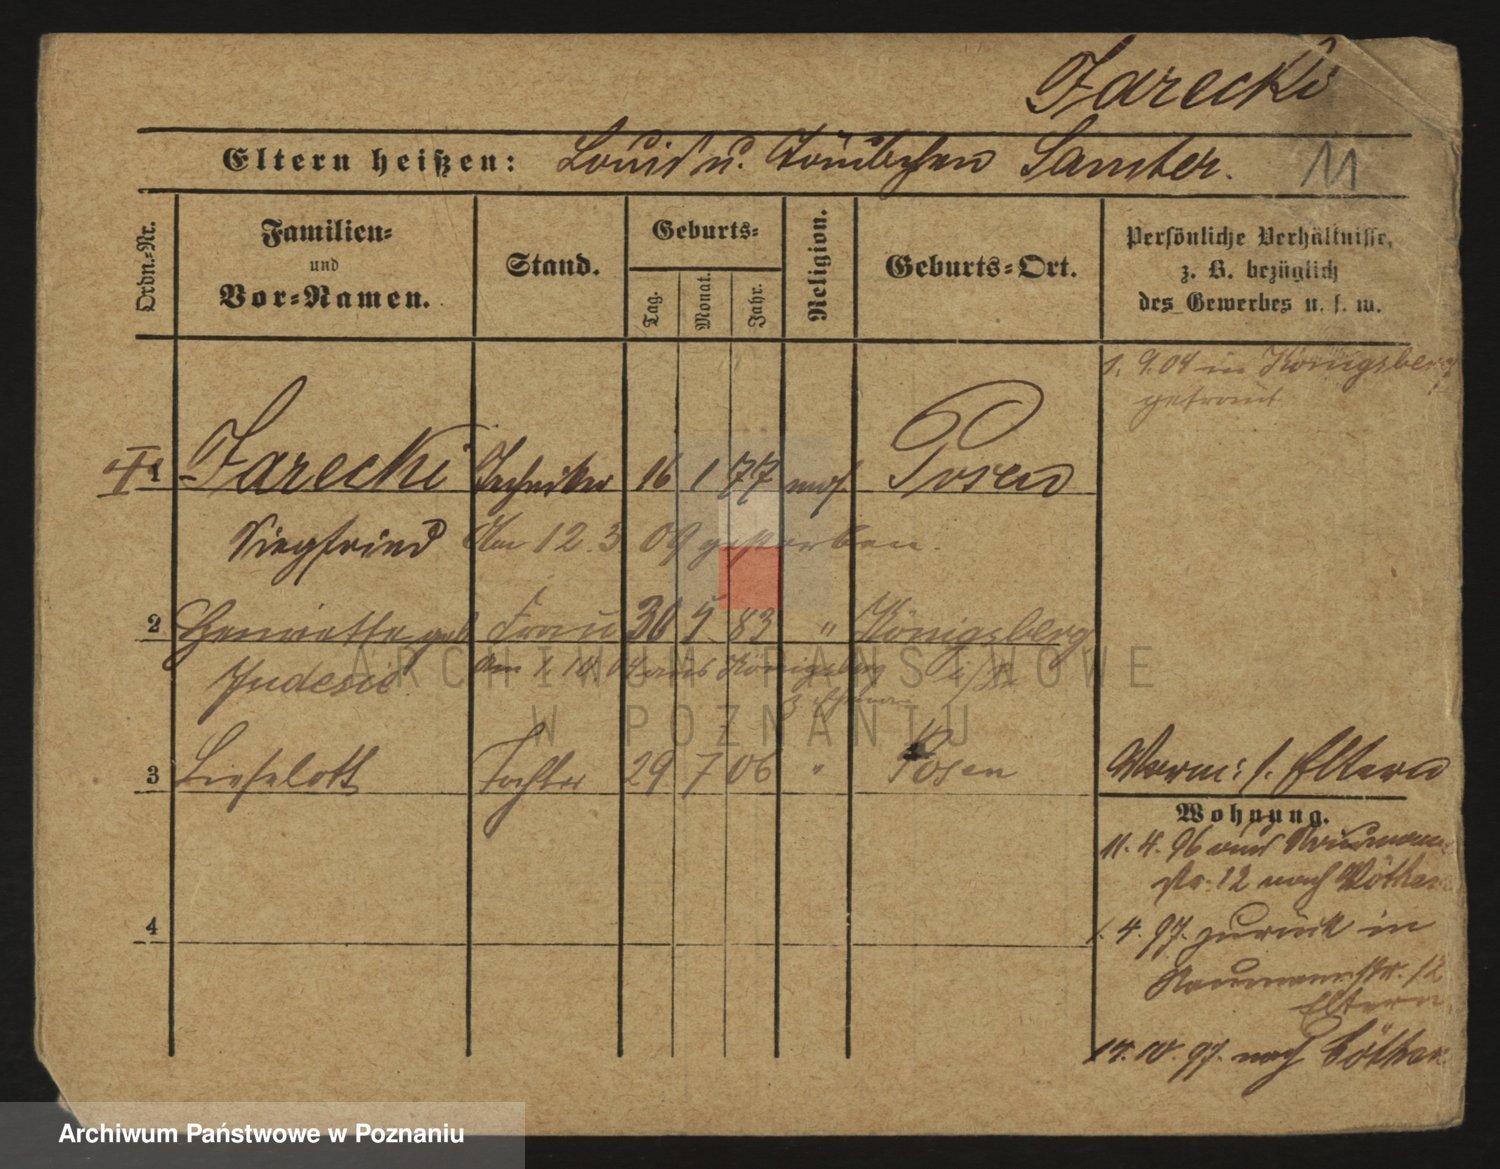 Jarecki
Eltern heißen: Louis u. Täubchen Samter.
11
Ordn.-Nr.
Familien-
und
Vor-Namen.
Stand.
Geburts-
Tag.
Monat.
Jahr.
Religion.
Geburts-Ort.
Persönliche Verhältnisse,
z. B. bezüglich
des Gewerbes u. s. w.
1. 9. 04 in Königsberg
getraut
1 Jarecki Techniker 16 1 77 mos Posen
Siegfried Am 12. 3 09 gestorben.
2 Henriette geb Frau 30 83 " Königsberg
am 1. 10 04 aus Königsberg i/Pr
3 Lieselott Tochter 29 7 06 " Posen
Verm: s. Eltern
Wohnung.
11. 4. 96 aus Naumann
str. 12 nach Cöthen
1. 4. 97. zurück in
Naumannstr. 12
Eltern
17. 10. 97. nach Cöthen
4
ARCHIWUM PAŃSTWOWE
W POZNANIU
Archiwum Państwowe w Poznaniu